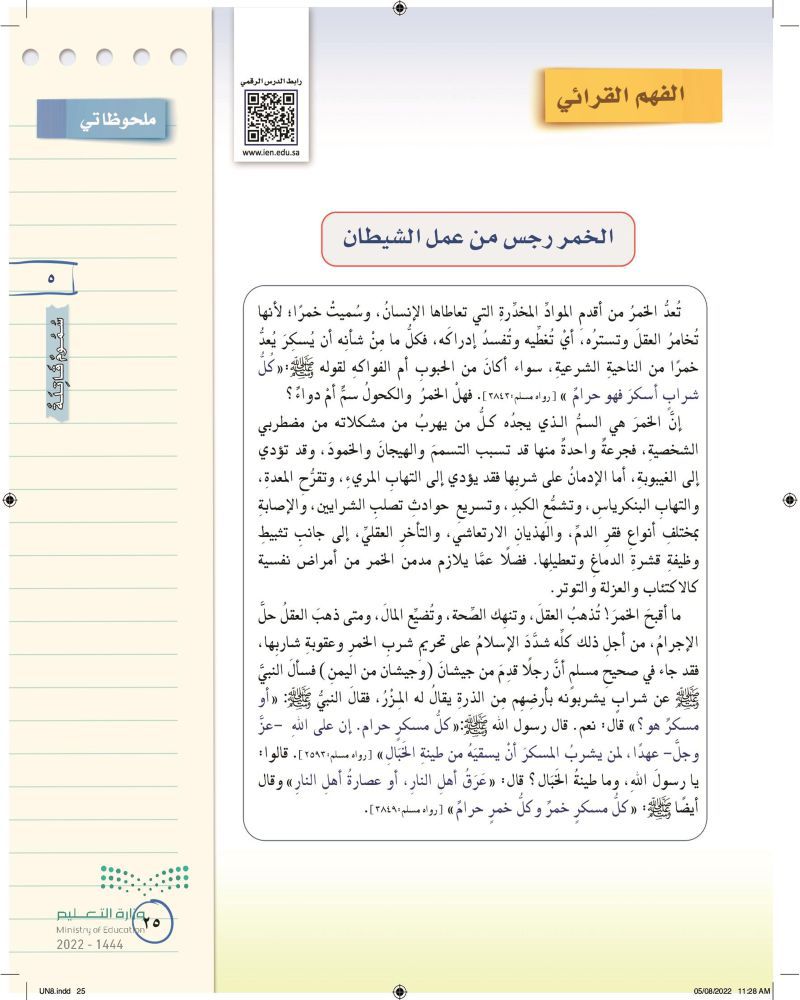 الفهم القرائي
رابط الدرس الرقمي
www.ien.edu.sa
ملحوظاتي
الخمر رجس من عمل الشيطان
تُعدُّ الخمرُ من أقدمِ الموادِّ المخدِّرةِ التي تعاطاها الإنسانُ، وسُميتْ خمرًا؛ لأنها
تُخامرُ العقلَ وتسترُه، أيْ تُغطِّيه وتُفسدُ إدراكَه، فكلُّ ما مِنْ شأنِه أن يُسكِرَ يُعدُّ
خمرًا من الناحيةِ الشرعيةِ، سواء أكانَ من الحبوبِ أم الفواكهِ لقوله ﷺ:«كُلُّ
شرابٍ أسكرَ فهو حرامٌ » [رواه مسلم:٣٨٤٣]. فهلْ الخمرُ والكحولُ سمٌّ أمْ دواءٌ؟
إنَّ الخمرَ هي السمُّ الذي يجدُه كلُّ من يهربُ من مشكلاته من مضطربي
الشخصيةِ، فجرعةٌ واحدةٌ منها قد تسبب التسممَ والهيجانَ والخمودَ، وقد تؤدي
إلى الغيبوبةِ، أما الإدمانُ على شربِها فقد يؤدي إلى التهابِ المريءِ، وتقرُّحِ المعدةِ،
والتهابِ البنكرياسِ، وتشمُّعِ الكبدِ، وتسريعِ حوادثِ تصلبِ الشرايينِ، والإصابةِ
بمختلفِ أنواعِ فقرِ الدمِّ، والهذيانِ الارتعاشي، والتأخرِ العقليِّ، إلى جانبِ تثبيطِ
وظيفةِ قشرةِ الدماغِ وتعطيلِها. فضلًا عمَّا يلازم مدمن الخمر من أمراض نفسية
كالاكتئاب والعزلة والتوتر.
ما أقبحَ الخمرَ! تُذهبُ العقلَ، وتنهكِ الصِّحة، وتُضيِّع المالَ، ومتى ذهبَ العقلُ حلَّ
الإجرامُ، من أجلِ ذلك كلِّه شدَّدَ الإسلامُ على تحريمِ شربِ الخمرِ وعقوبةِ شاربِها،
فقد جاء في صحيحِ مسلمٍ أنَّ رجلًا قدِمَ من جيشانَ (وجيشان من اليمنِ) فسألَ النبيَّ
ﷺ عن شرابٍ يشربونَه بأرضِهم مِن الذرةِ يقالُ له المِزْرُ، فقالَ النبيُّ ﷺ: «أو
مسكرٌ هو؟» قال: نعم. قال رسول الله ﷺ:«كلُّ مسكرٍ حرام. إن على اللهِ -عزَّ
وجلَّ- عهدًا، لمن يشربُ المسكرَ أنْ يسقيَهُ من طينةِ الخَبَالِ» [رواه مسلم:٢٥٩٣]. قالوا:
يا رسولَ اللهِ، وما طينةُ الخَبَالِ؟ قال: «عَرَقُ أهلِ النارِ، أو عصارةُ أهلِ النارِ» وقال
أيضًا ﷺ: «كلُّ مسكرٍ خمرٌ وكلُّ خمرٍ حرامٌ» [رواه مسلم:٣٨٤٩].
٥
سُمُومٌ قَاتِلَةٌ
وزارة التعليم
Ministry of Education
2022 - 1444
٢٥
UN8.indd 25
05/08/2022 11:28 AM